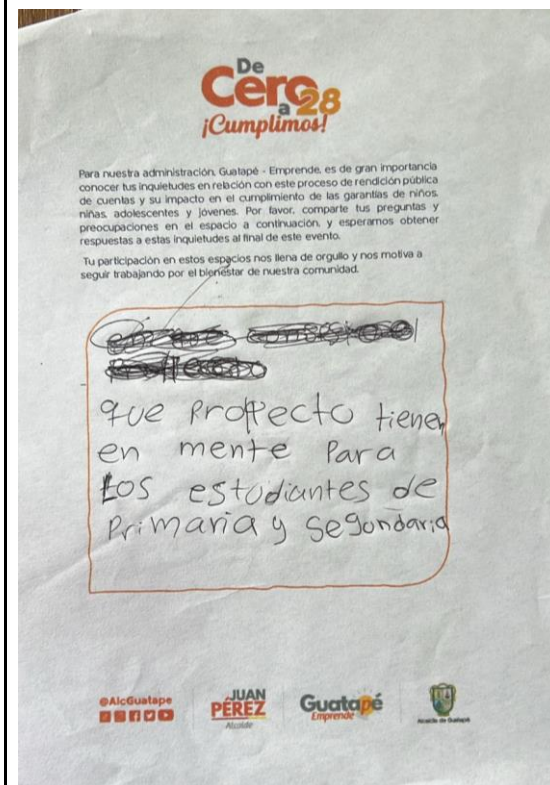 De
Cero
a 28
¡Cumplimos!
Para nuestra administración, Guatapé - Emprende, es de gran importancia
conocer tus inquietudes en relación con este proceso de rendición pública
de cuentas y su impacto en el cumplimiento de las garantías de niños,
niñas, adolescentes y jóvenes. Por favor, comparte tus preguntas y
preocupaciones en el espacio a continuación, y esperamos obtener
respuestas a estas inquietudes al final de este evento.
Tu participación en estos espacios nos llena de orgullo y nos motiva a
seguir trabajando por el bienestar de nuestra comunidad.
que Proyecto tienen
en mente Para
Los estudiantes de
Primaria y Segondaria
@AlcGuatape
JUAN
PÉREZ
Alcalde
Guatapé
Emprende
Alcaldía de Guatapé